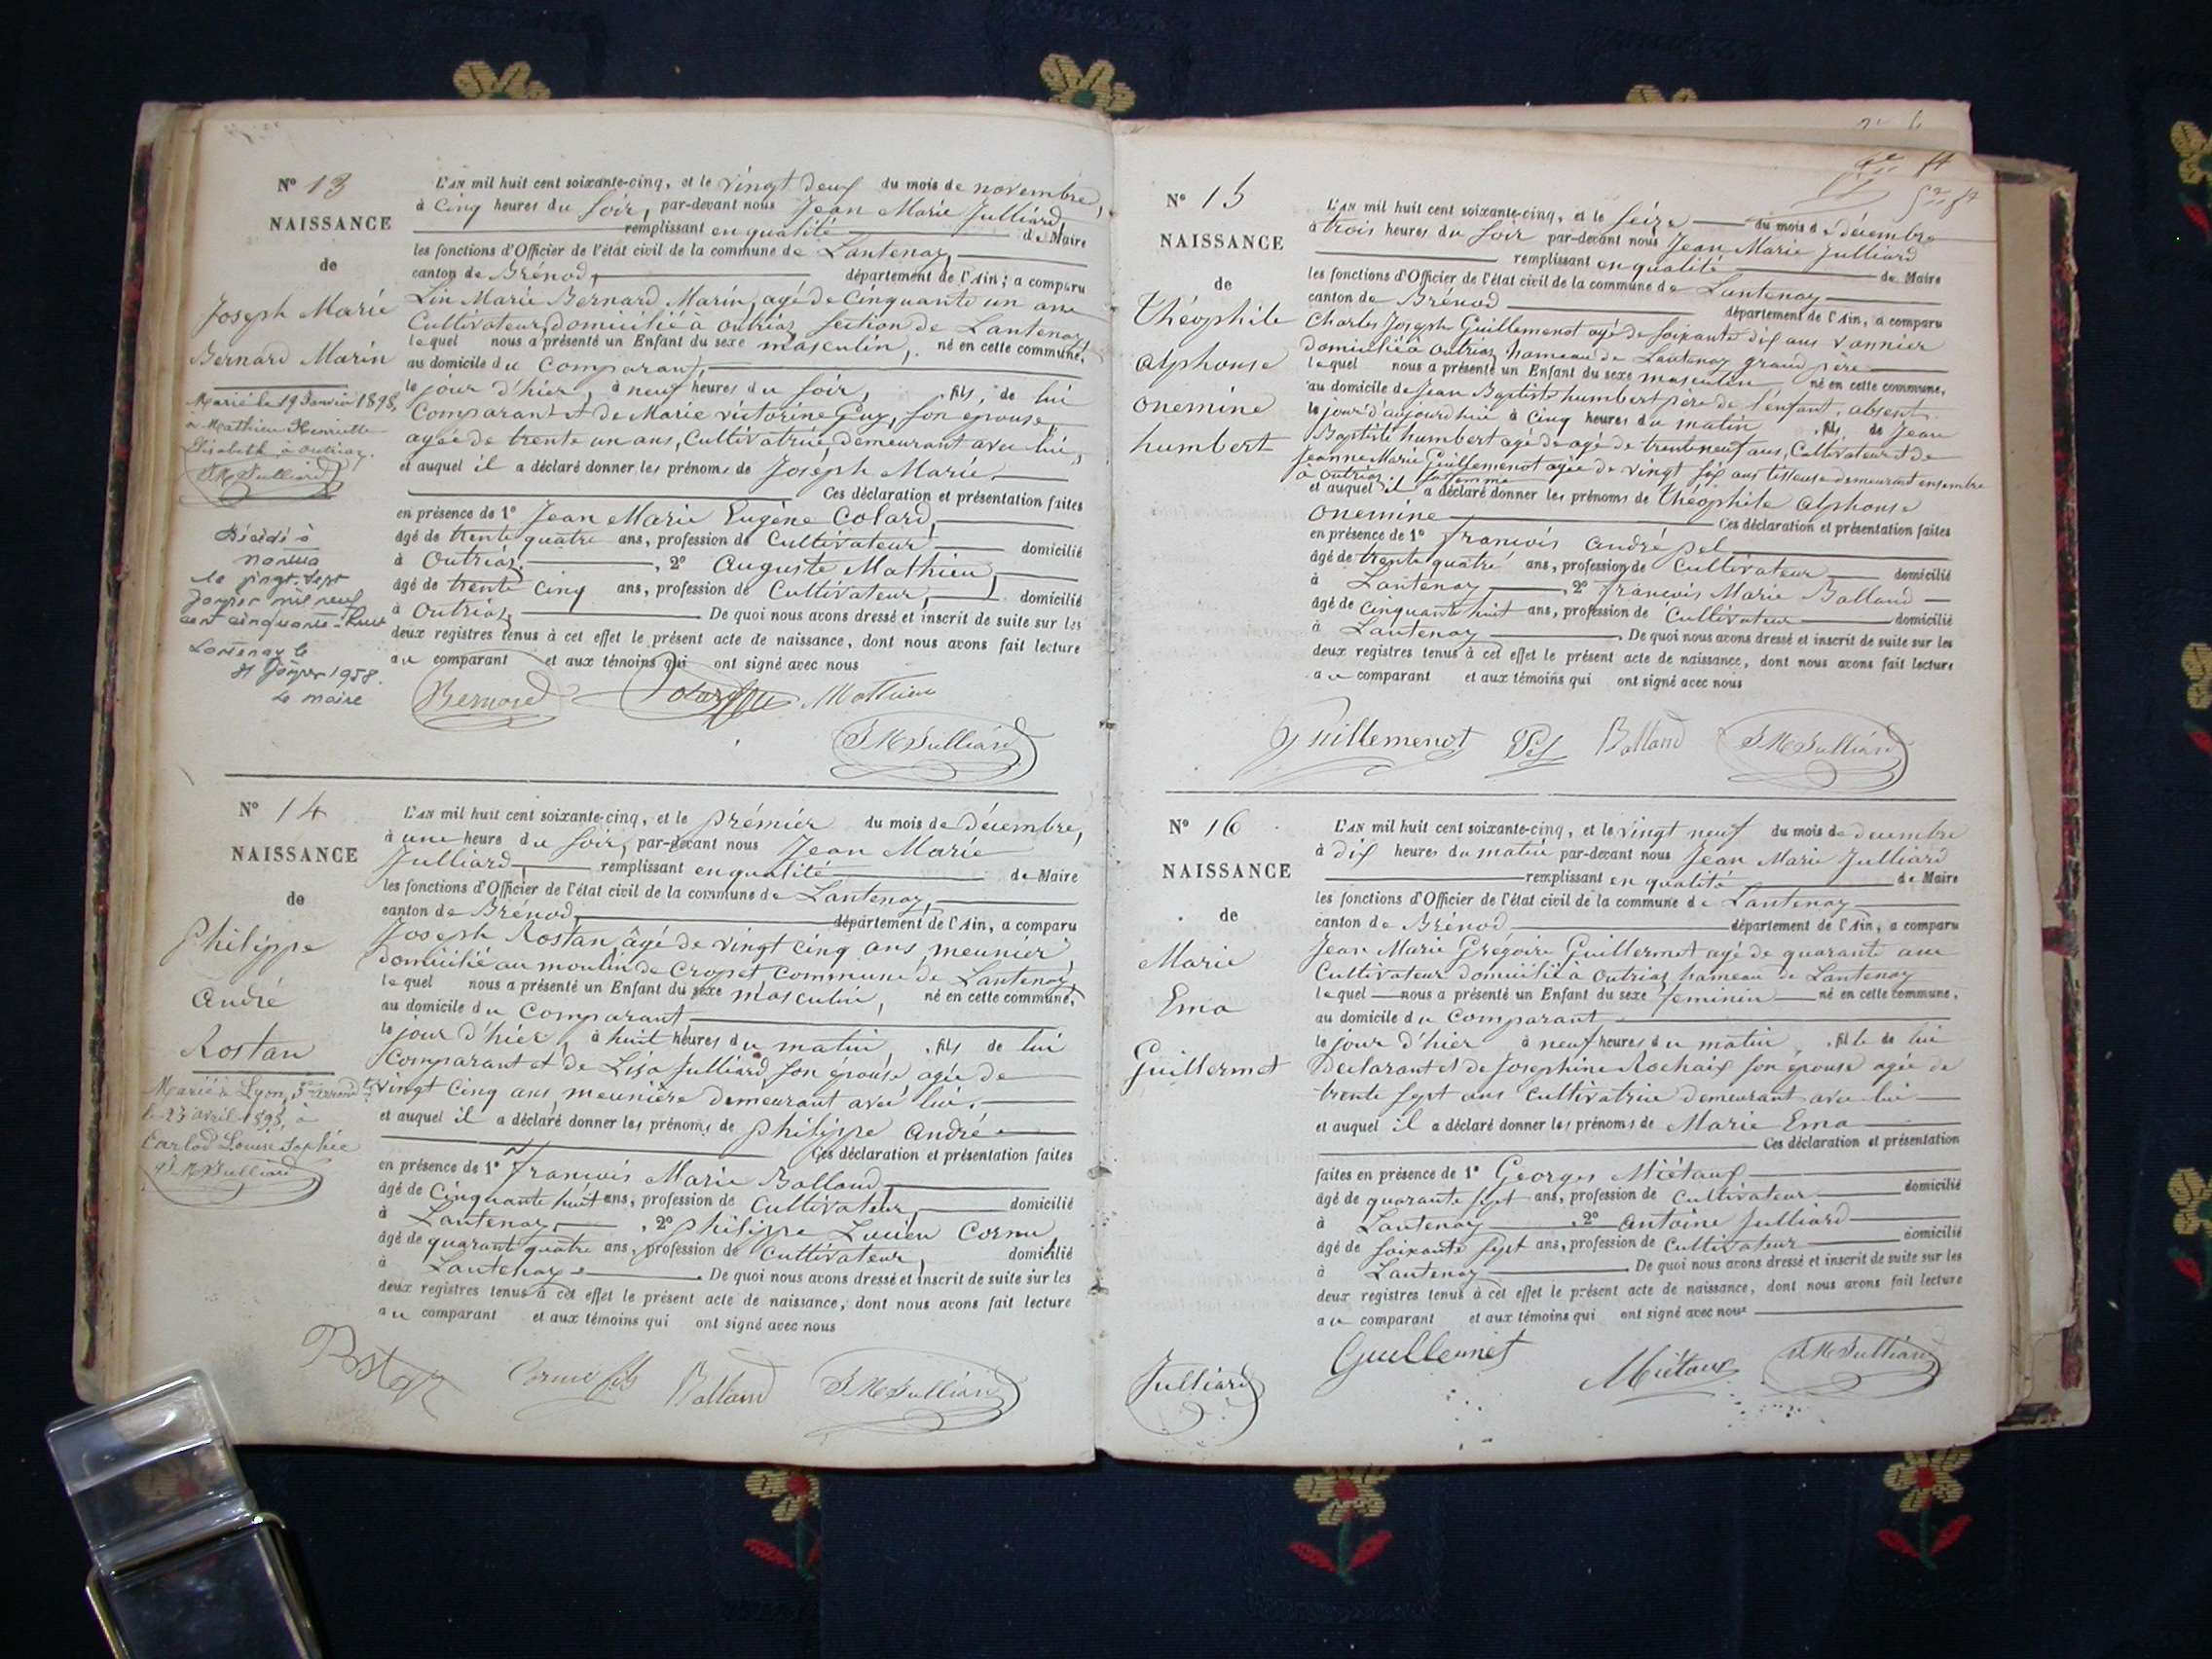 N° 13
NAISSANCE
de
Joseph Marie
Bernard Marin
Marié le 19 Janvier 1898,
à Mathieu Henriette
Elisabeth à outriaz.
JM Julliard
Décédé à
nantua
le vingt-sept
janvier mil neuf
cent cinquante-huit
Lantenay le
31 janvier 1958.
Le maire
L'AN mil huit cent soixante-cinq, et le vingt deux du mois de novembre,
à cinq heures du soir, par-devant nous Jean Marie Julliard,
remplissant en qualité de Maire
les fonctions d'Officier de l'état civil de la commune de Lantenay,
canton de Brénod, département de l'Ain; a comparu
Lin Marie Bernard Marin, agé de cinquante un ans
Cultivateur, domicilié à outriaz section de Lantenay,
lequel nous a présenté un Enfant du sexe masculin, né en cette commune,
au domicile du comparant,
le jour d'hier, à neuf heures du soir, fils, de lui
Comparant et de Marie victorine Guy, son épouse,
agée de trente un ans, Cultivatrice, demeurant avec lui,
et auquel il a déclaré donner les prénoms de Joseph Marie
Ces déclaration et présentation faites
en présence de 1° Jean Marie Eugène Colard,
âgé de trente quatre ans, profession de Cultivateur domicilié
à Outriaz, 2° Auguste Mathieu,
âgé de trente cinq ans, profession de Cultivateur, domicilié
à Outriaz, De quoi nous avons dressé et inscrit de suite sur les
deux registres tenus à cet effet le présent acte de naissance, dont nous avons fait lecture
au comparant et aux témoins qui ont signé avec nous
Bernard Colard Mathieu
JM Julliard
N° 14
NAISSANCE
de
Philippe
André
Rostan
Marié à Lyon, 3me arrondt
le 23 avril 1898, à
Carlod Louise Sophie
J M Julliard
L'AN mil huit cent soixante-cinq, et le prémiér du mois de décembre,
à une heure du soir, par-devant nous Jean Marie
Julliard remplissant en qualité de Maire
les fonctions d'Officier de l'état civil de la commune de Lantenay,
canton de Brénod, département de l'Ain, a comparu
Joseph Rostan, âgé de vingt cinq ans, meunier,
domicilié au moulin de Cropet commune de Lantenay,
lequel nous a présenté un Enfant du sexe masculin, né en cette commune,
au domicile du comparant
le jour d'hier, à huit heures du matin, fils de lui
comparant et de Lisa Julliard son épouse, agée de
vingt cinq ans, meunière demeurant avec lui.
et auquel il a déclaré donner les prénoms de philippe andré
Ces déclaration et présentation faites
en présence de 1° François Marie Balland
âgé de Cinquante huit ans, profession de Cultivateur, domicilié
à Lantenay, 2° philippe Lucien Cornu
âgé de quarante quatre ans, profession de Cultivateur, domicilié
à Lantenay De quoi nous avons dressé et inscrit de suite sur les
deux registres tenus à cet effet le présent acte de naissance, dont nous avons fait lecture
au comparant et aux témoins qui ont signé avec nous
Rostan Cornu fils Balland JM Julliard
N° 15
NAISSANCE
de
Théophile
alphonse
onemine
humbert
L'AN mil huit cent soixante-cinq, et le seize du mois de décembre
à trois heures du soir par-devant nous Jean Marie Julliard
remplissant en qualité de Maire
les fonctions d'Officier de l'état civil de la commune de Lantenay
canton de Brénod département de l'Ain, a comparu
Charles Joseph Guillemenot agé de soixante dix ans vannier
domicilié à outriaz hameau de Lantenay grand père
lequel nous a présenté un Enfant du sexe masculin né en cette commune,
au domicile de Jean Baptiste humbert père de l'enfant, absent
le jour d'aujourd'hui à cinq heures du matin, fils de Jean
Baptiste humbert agé de agé de trente neuf ans, Cultivateur et de
Jeanne Marie Guillemenot agée de vingt six ans tisseuse demeurant ensembre
à outriaz. sa femme
et auquel il a déclaré donner les prénoms de Théophile alphonse
onemine Ces déclaration et présentation faites
en présence de 1° françois andré pel
âgé de trente quatre ans, profession de Cultivateur domicilié
à Lantenay, 2° françois Marie Balland
âgé de cinquante huit ans, profession de Cultivateur domicilié
à Lantenay De quoi nous avons dressé et inscrit de suite sur les
deux registres tenus à cet effet le présent acte de naissance, dont nous avons fait lecture
au comparant et aux témoins qui ont signé avec nous
Guillemenot Pel Balland JM Julliard
N° 16
NAISSANCE
de
Marie
Ema
Guillermet
L'AN mil huit cent soixante-cinq, et le vingt neuf du mois de decembre
à dix heures du matin par-devant nous Jean Marie Julliard
remplissant en qualité de Maire
les fonctions d'Officier de l'état civil de la commune de Lantenay
canton de Brénod département de l'Ain, a comparu
Jean Marie Grégoire Guillermet agé de quarante ans
Cultivateur domicilié à outriaz hameau de Lantenay
lequel nous a présenté un Enfant du sexe feminin né en cette commune,
au domicile du Comparant
le jour d'hier à neuf heures du matin, fille de lui
Déclarant et de Josephine Rochaix son épouse agée de
trente sept ans cultivatrice demeurant avec lui
et auquel il a déclaré donner les prénoms de Marie Ema
Ces déclaration et présentation
faites en présence de 1° Georges Miétaux
âgé de quarante sept ans, profession de Cultivateur domicilié
à Lantenay, 2° antoine Julliard
âgé de soixante sept ans, profession de Cultivateur domicilié
à Lantenay De quoi nous avons dressé et inscrit de suite sur les
deux registres tenus à cet effet le présent acte de naissance, dont nous avons fait lecture
au comparant et aux témoins qui ont signé avec nous
Julliard Guillermet Miétaux JM Julliard